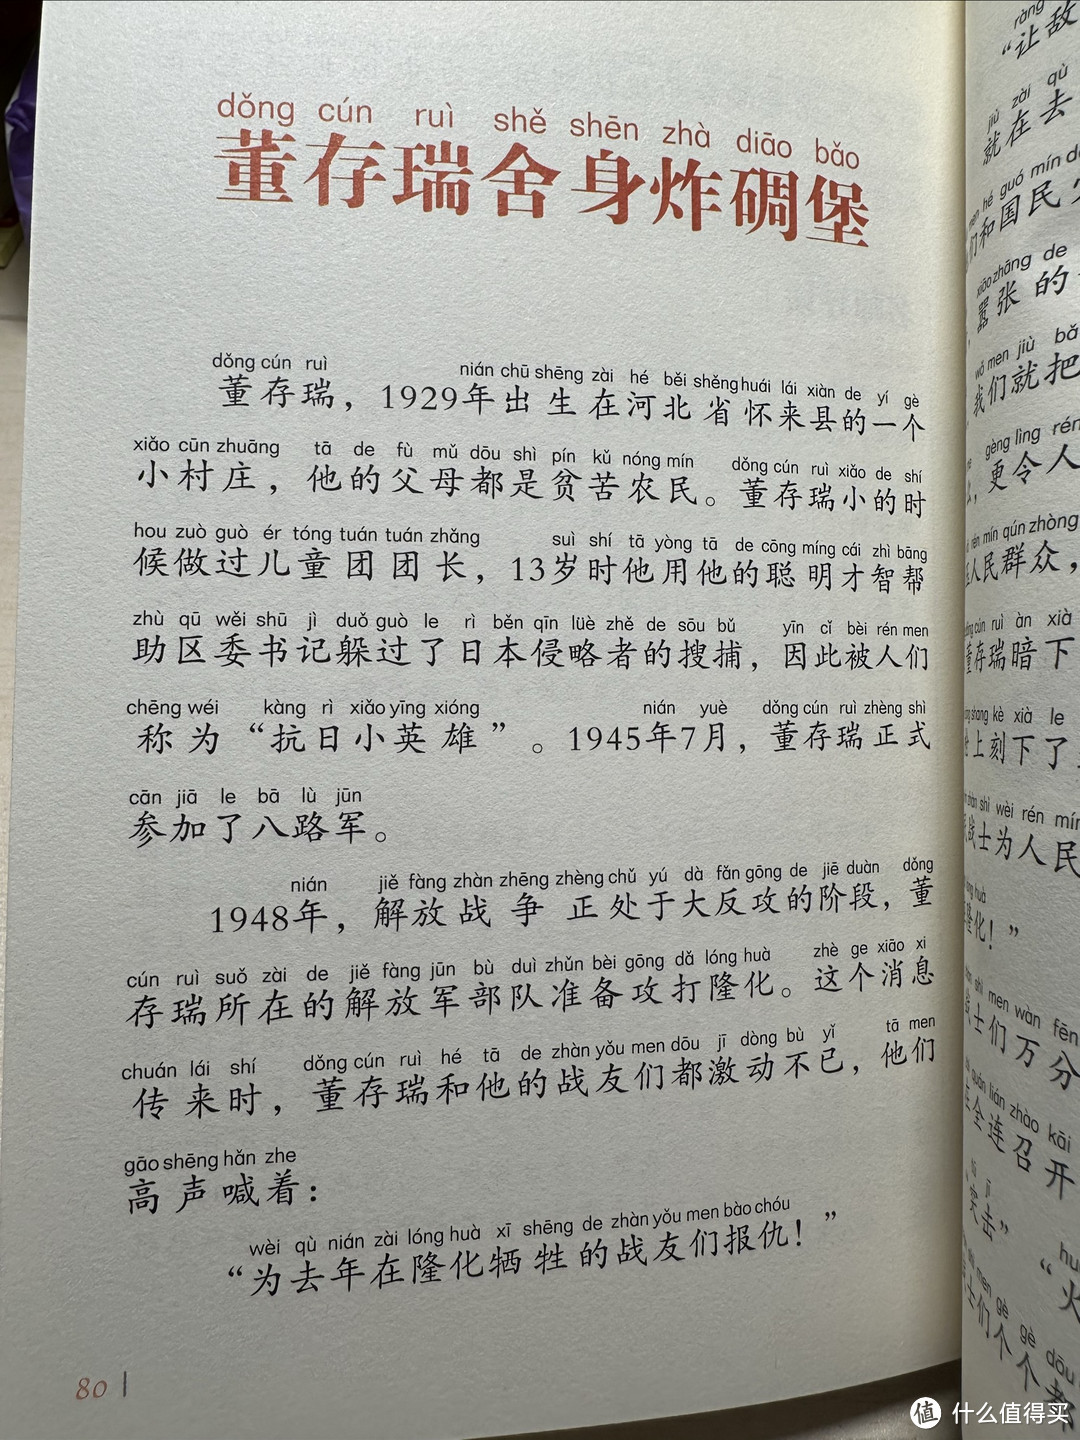 dǒng cún ruì shě shēn zhà diāo bǎo
董存瑞舍身炸碉堡
dǒng cún ruì nián chū shēng zài hé běi shěng huái lái xiàn de yí gè
董存瑞，1929年出生在河北省怀来县的一个
xiǎo cūn zhuāng tā de fù mǔ dōu shì pín kǔ nóng mín dǒng cún ruì xiǎo de shí
小村庄，他的父母都是贫苦农民。董存瑞小的时
hou zuò guò ér tóng tuán tuán zhǎng suì shí tā yòng tā de cōng míng cái zhì bāng
候做过儿童团团长，13岁时他用他的聪明才智帮
zhù qū wěi shū jì duǒ guò le rì běn qīn lüè zhě de sōu bǔ yīn cǐ bèi rén men
助区委书记躲过了日本侵略者的搜捕，因此被人们
chēng wéi kàng rì xiǎo yīng xióng nián yuè dǒng cún ruì zhèng shì
称为“抗日小英雄”。1945年7月，董存瑞正式
cān jiā le bā lù jūn
参加了八路军。
nián jiě fàng zhàn zhēng zhèng chǔ yú dà fǎn gōng de jiē duàn dǒng
1948年，解放战争正处于大反攻的阶段，董
cún ruì suǒ zài de jiě fàng jūn bù duì zhǔn bèi gōng dǎ lóng huà zhè ge xiāo xi
存瑞所在的解放军部队准备攻打隆化。这个消息
chuán lái shí dǒng cún ruì hé tā de zhàn yǒu men dōu jī dòng bù yǐ tā men
传来时，董存瑞和他的战友们都激动不已，他们
gāo shēng hǎn zhe
高声喊着：
wèi qù nián zài lóng huà xī shēng de zhàn yǒu men bào chóu
“为去年在隆化牺牲的战友们报仇！”
80
ràng
“让敌
jiù zài qù
就在去
men hé guó mín
们和国民
xiāo zhāng de
嚣张的
wǒ men jiù bǎ
我们就把
gèng lìng rén
，更令人
rén mín qún zhòng
人民群众，
cún ruì àn xià
董存瑞暗下
shang kè xià le
上刻下了
shì wèi rén mín
战士为人民
huà
隆化！”
shì men wàn fēn
战士们万分
quán lián zhào kāi
全连召开
tū jī
突击”
“火
men gè gè dōu
士们个个都
值 什么值得买